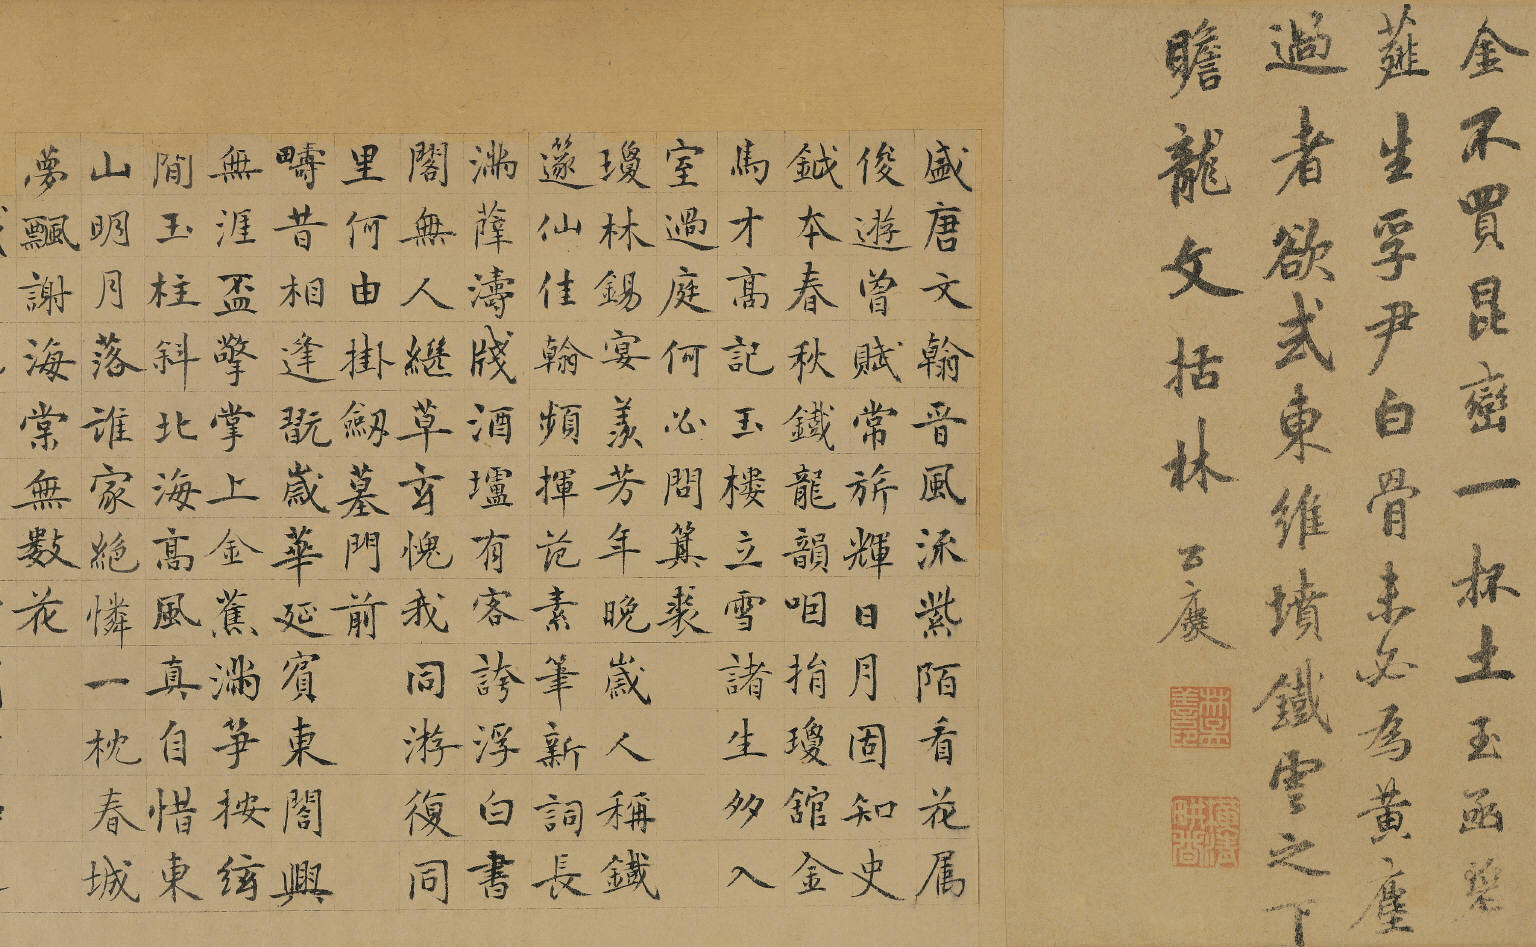 金不買昆巒一杯土玉函䂖
薤生孚尹白骨未必為黃塵
過者欲式東維墳鐵雲之下
瞻龍文括林 公慶
盛唐文翰晉風流紫陌看花属
俊遊曾賦常旂輝日月固知史
鉞本春秋鐵龍韻咽捐瓊舘金
馬才高記玉樓立雪諸生多入
室過庭何必問箕裘
瓊林錫宴羨芳年晚歲人稱鐵
篴仙佳翰頻揮范素筆新詞長
滿薛濤牋酒壚有客誇浮白書
閣無人繼草玄愧我同游復同
里何由掛劒墓門前
疇昔相逢翫歲華延賓東閤興
無涯盃擎掌上金蕉滿箏按絃
間玉柱斜北海高風真自惜東
山明月落誰家絕憐一枕春城
夢飄謝海棠無數花